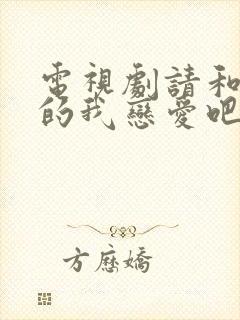 電視劇請和
的我戀愛吧
方應嬌